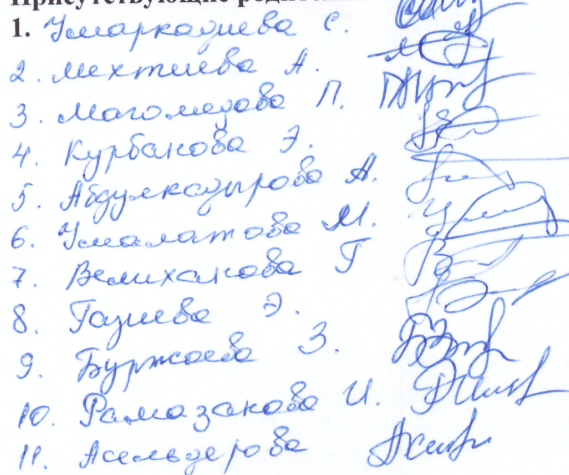 Присутствующие родители
1. Умаркадиева С.
2. Мехтиева А.
3. Магомедова П.
4. Курбанова Э.
5. Абдулкадырова А.
6. Умалатова М.
7. Велиханова Г
8. Газиева Э.
9. Буржаева З.
10. Рамазанова И.
11. Асельдерова